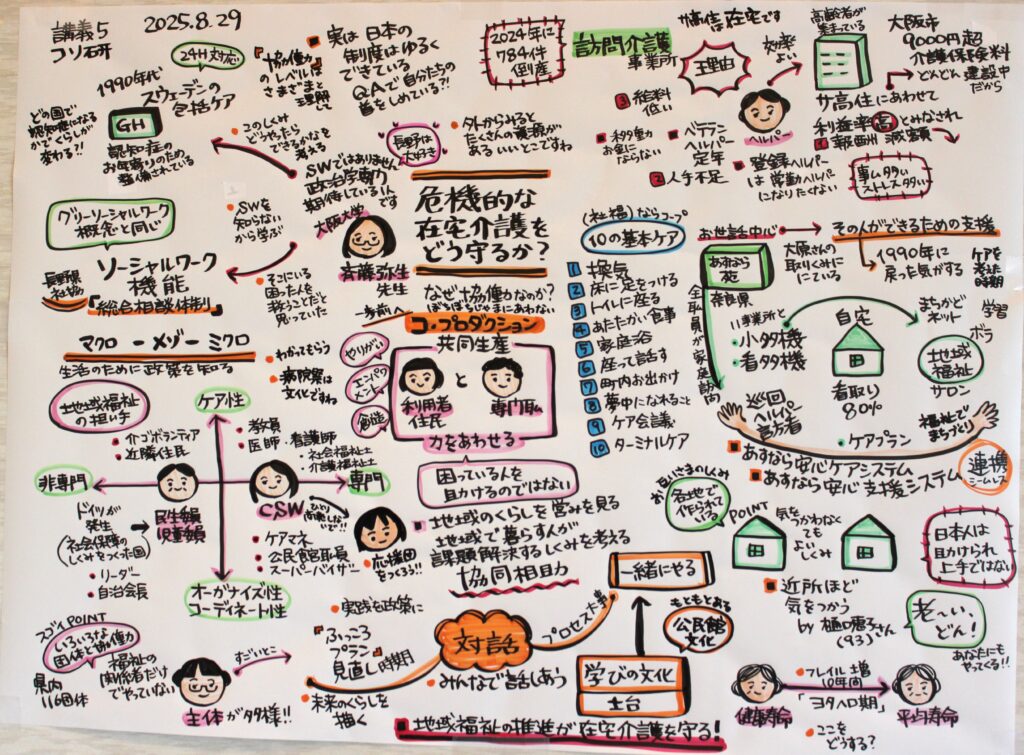 講義5
コソ石研
2025.8.29
24H対応
1990年代
スウェーデンの
包括ケア
どの国で
認知症になる
かでくらしが
変わる?!
GH
認知症の
お年寄りのため
整備されている
『協働』
のレベルは
さまざまと
理解して
このしくみ
どうやったら
できるかなを
考える
実は日本の
制度はゆるく
できている
QAで自分たちの
首をしめている?!
長野は
大好き
外からみると
たくさんの資源が
あるいいとこですね
SWではありません
政治学専攻
期待している1人
です
大阪大学
斉藤弥生
先生
グリーソーシャルワーク
概念と同じ
SWを
知らない
から学ぶ
ソーシャルワーク
機能
長野県
社協
『総合相談体制』
そこにいる
困った人を
救うことだと
思っていた
危機的な
在宅介護を
どう守るか?
なぜ協働なのか?
ぼちぼちじゃまにあわない
一歩前へ
コ・プロダクション
共同生産
やりがい
エンパワ
メント
創造
利用者
住民
と
専門職
力をあわせる
困っている人を
助けるのではない
地域のくらしを営みを見る
地域で暮らす人が
課題解決するしくみを考える
協同相助
2024年に
784件
倒産
訪問介護
事業所
サ高住在宅です
理由
効率
よい
高齢者が
集まっている
大阪市
9000円超
介護保険料
どんどん建設中
だから
サ高住にあわせて
利益率高とみなされ
1 報酬減額
3 給料
低い
移動
お金に
ならない
ベテラン
ヘルパー
定年
2 人手不足
ヘルパー
登録ヘルパー
は常勤ヘルパー
になりたくない
事ム多い
ストレス多い
(社福)ならコープ
10の基本ケア
1 換気
2 床に足をつける
3 トイレに座る
4 あたたかい食事
5 家庭浴
6 座って話す
7 町内お出かけ
8 夢中になれること
9 ケア会議
10 ターミナルケア
お世話中心
その人ができるための支援
あすなら
苑
奈良県
大原さんの
取りくみに
にている
1990年に
戻った気がする
ケアを
考えた
時期
全職員が家庭訪問
11事業所と
小多機
看多機
自宅
看取り
80%
まちかど
ネット
学習
ボラ
地域
福祉
サロン
巡回
ヘルパー
訪看
ケアプラン
福祉で
まちづくり
あすなら安心ケアシステム
あすなら安心支援システム
連携
シームレス
マクロ ー メゾー ミクロ
生活のために政策を知る
わかってもらう
病院祭は
文化ですね
地域福祉
の担い手
ケア性
介ゴボランティア
近隣住民
教員
医師・看護師
社会福祉士
介護福祉士
非専門
専門
ドイツが
発生
(社会保障の
しくみをつくった国)
民生委員
児童委員
CSW
ひとり
開業しな
いで!!
応援団
をつくろう!!
リーダー
自治会長
ケアマネ
公民館館長
スーパーバイザー
オーガナイズ性
コーディネート性
スゴイPOINT
いろいろな
団体と協働
県内
116団体
福祉の
関係者だけ
でやっていない
主体が多様!!
すごいこと
実践を政策に
『ふっころ
プラン』
見直し時期
未来のくらしを
描く
対話
みんなで話しあう
プロセス大事
一緒にやる
もともとある
公民館
文化
学びの文化
土台
地域福祉の推進が在宅介護を守る!
お互いさまのしくみ
各地で
作られて
いる
POINT
気を
つかわなく
ても
よい
しくみ
近所ほど
気をつかう
by 樋口恵子さん
(93)
日本人は
助けられ
上手ではない
老〜い、
どん!
あなたにも
やってくる!!
健康寿命
フレイル増
10年間
「ヨタヘロ期」
平均寿命
ここを
どうする?